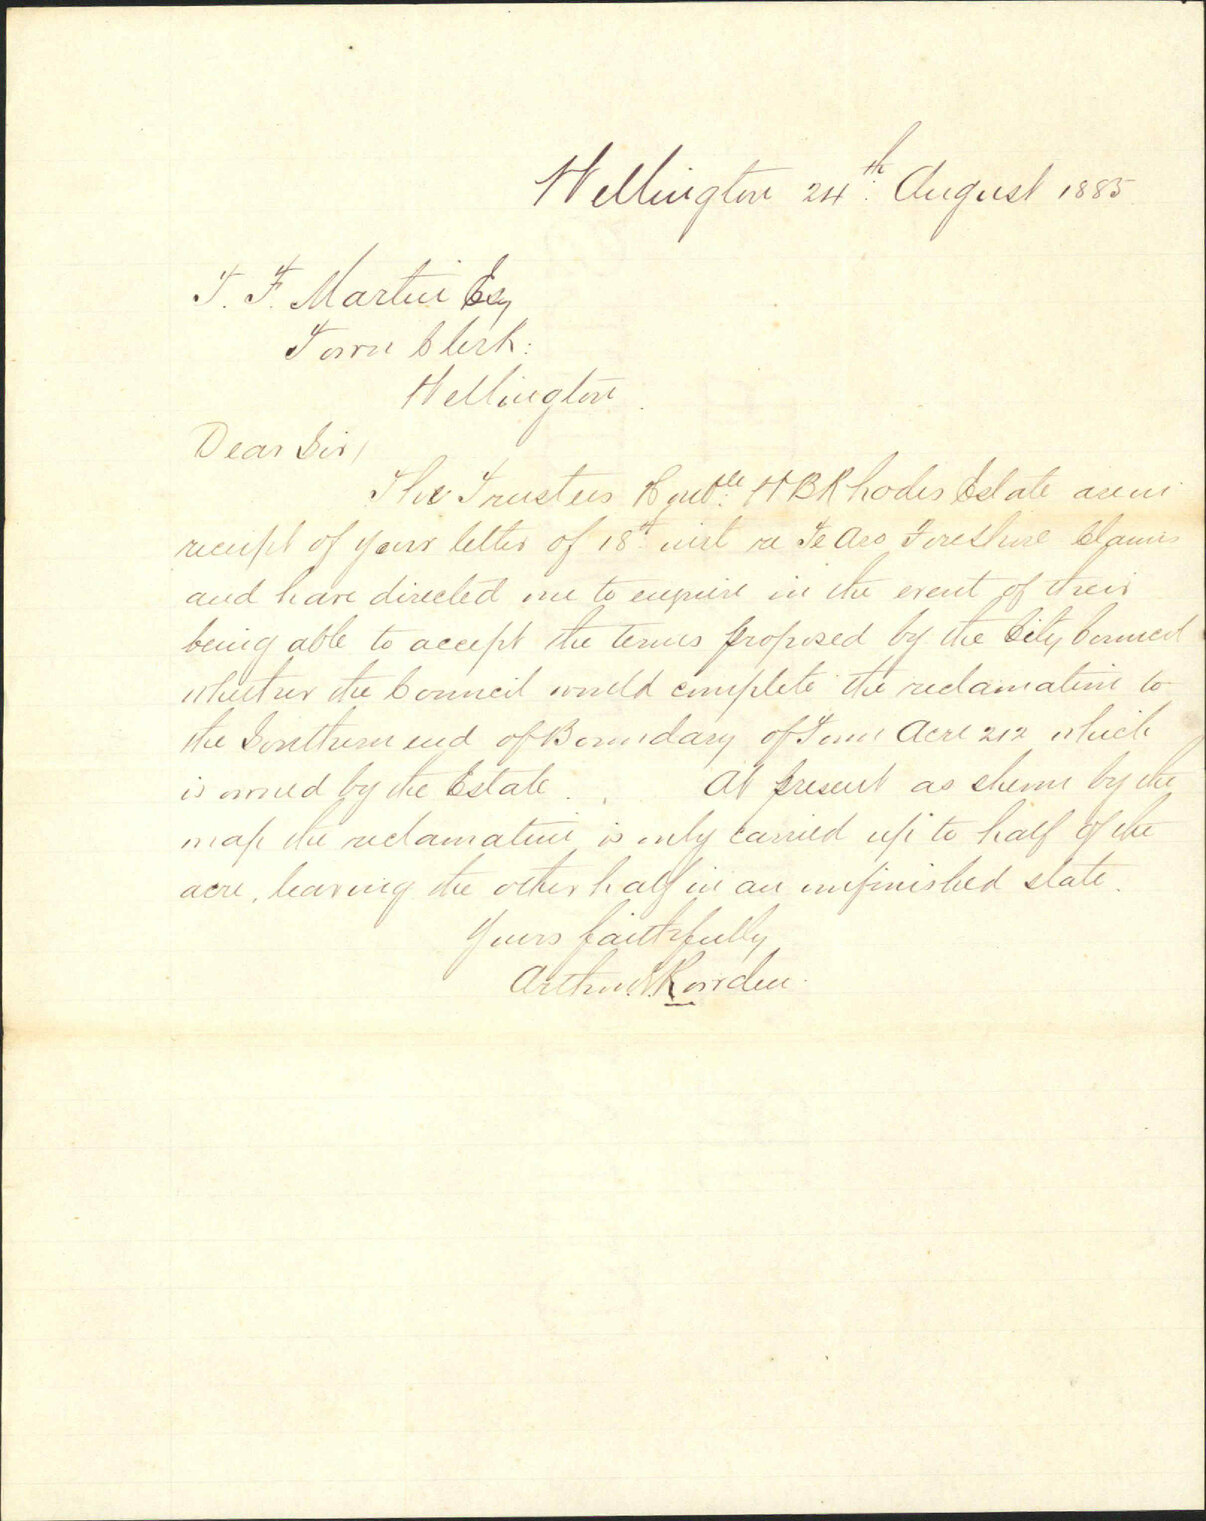 Wellington 24th. August 1885
T. F. Martin Esq
Town Clerk:
Wellington.
Dear Sir,
The Trustees Honble. W B Rhodes Estate are in
receipt of your letter of 18th inst re Te Aro Foreshore Claims
and have directed me to enquire in the event of their
being able to accept the terms proposed by the City Council
whether the Council would complete the reclamation to
the Southern end of Boundary of Town Acre 212 which
is owned by the Estate. At present as shewn by the
map the reclamation is only carried up to half of the
acre, leaving the other half in an unfinished state.
Yours faithfully
Arthur Rowden.